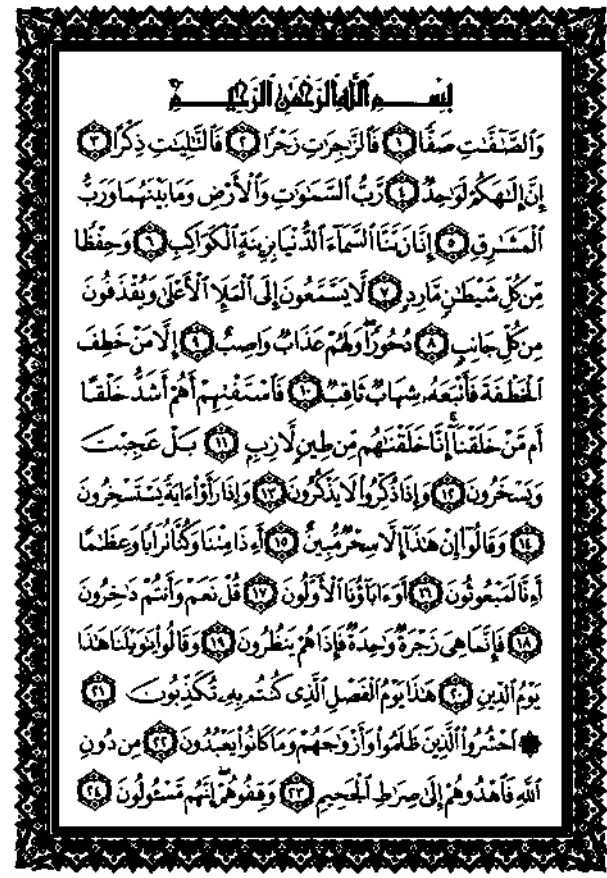 بِسْمِ ٱللَّهِ ٱلرَّحْمَٰنِ ٱلرَّحِيمِ
وَٱلصَّٰٓفَّٰتِ صَفًّا ١ فَٱلزَّٰجِرَٰتِ زَجْرًا ٢ فَٱلتَّٰلِيَٰتِ ذِكْرًا ٣
إِنَّ إِلَٰهَكُمْ لَوَٰحِدٌ ٤ رَّبُّ ٱلسَّمَٰوَٰتِ وَٱلْأَرْضِ وَمَا بَيْنَهُمَا وَرَبُّ
ٱلْمَشَٰرِقِ ٥ إِنَّا زَيَّنَّا ٱلسَّمَآءَ ٱلدُّنْيَا بِزِينَةٍ ٱلْكَوَاكِبِ ٦ وَحِفْظًا
مِّن كُلِّ شَيْطَٰنٍ مَّارِدٍ ٧ لَّا يَسَّمَّعُونَ إِلَى ٱلْمَلَإِ ٱلْأَعْلَىٰ وَيُقْذَفُونَ
مِن كُلِّ جَانِبٍ ٨ دُحُورًا وَلَهُمْ عَذَابٌ وَاصِبٌ ٩ إِلَّا مَنْ خَطِفَ
ٱلْخَطْفَةَ فَأَتْبَعَهُۥ شِهَابٌ ثَاقِبٌ ١٠ فَٱسْتَفْتِهِمْ أَهُمْ أَشَدُّ خَلْقًا
أَم مَّنْ خَلَقْنَآ إِنَّا خَلَقْنَٰهُم مِّن طِينٍ لَّازِبٍ ١١ بَلْ عَجِبْتَ
وَيَسْخَرُونَ ١٢ وَإِذَا ذُكِّرُوا۟ لَا يَذْكُرُونَ ١٣ وَإِذَا رَأَوْا۟ ءَايَةً يَسْتَسْخِرُونَ
١٤ وَقَالُوٓا۟ إِنْ هَٰذَآ إِلَّا سِحْرٌ مُّبِينٌ ١٥ أَءِذَا مِتْنَا وَكُنَّا تُرَابًا وَعِظَٰمًا
أَءِنَّا لَمَبْعُوثُونَ ١٦ أَوَءَابَآؤُنَا ٱلْأَوَّلُونَ ١٧ قُلْ نَعَمْ وَأَنتُمْ دَٰخِرُونَ
١٨ فَإِنَّمَا هِىَ زَجْرَةٌ وَٰحِدَةٌ فَإِذَا هُمْ يَنظُرُونَ ١٩ وَقَالُوا۟ يَٰوَيْلَنَا هَٰذَا
يَوْمُ ٱلدِّينِ ٢٠ هَٰذَا يَوْمُ ٱلْفَصْلِ ٱلَّذِى كُنتُم بِهِۦ تُكَذِّبُونَ ٢١
۞ ٱحْشُرُوا۟ ٱلَّذِينَ ظَلَمُوا۟ وَأَزْوَٰجَهُمْ وَمَا كَانُوا۟ يَعْبُدُونَ ٢٢ مِن دُونِ
ٱللَّهِ فَٱهْدُوهُمْ إِلَىٰ صِرَٰطِ ٱلْجَحِيمِ ٢٣ وَقِفُوهُمْ إِنَّهُم مَّسْـُٔولُونَ ٢٤